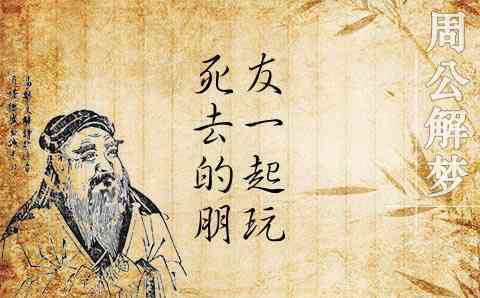 周公解梦
死去的朋
友一起玩